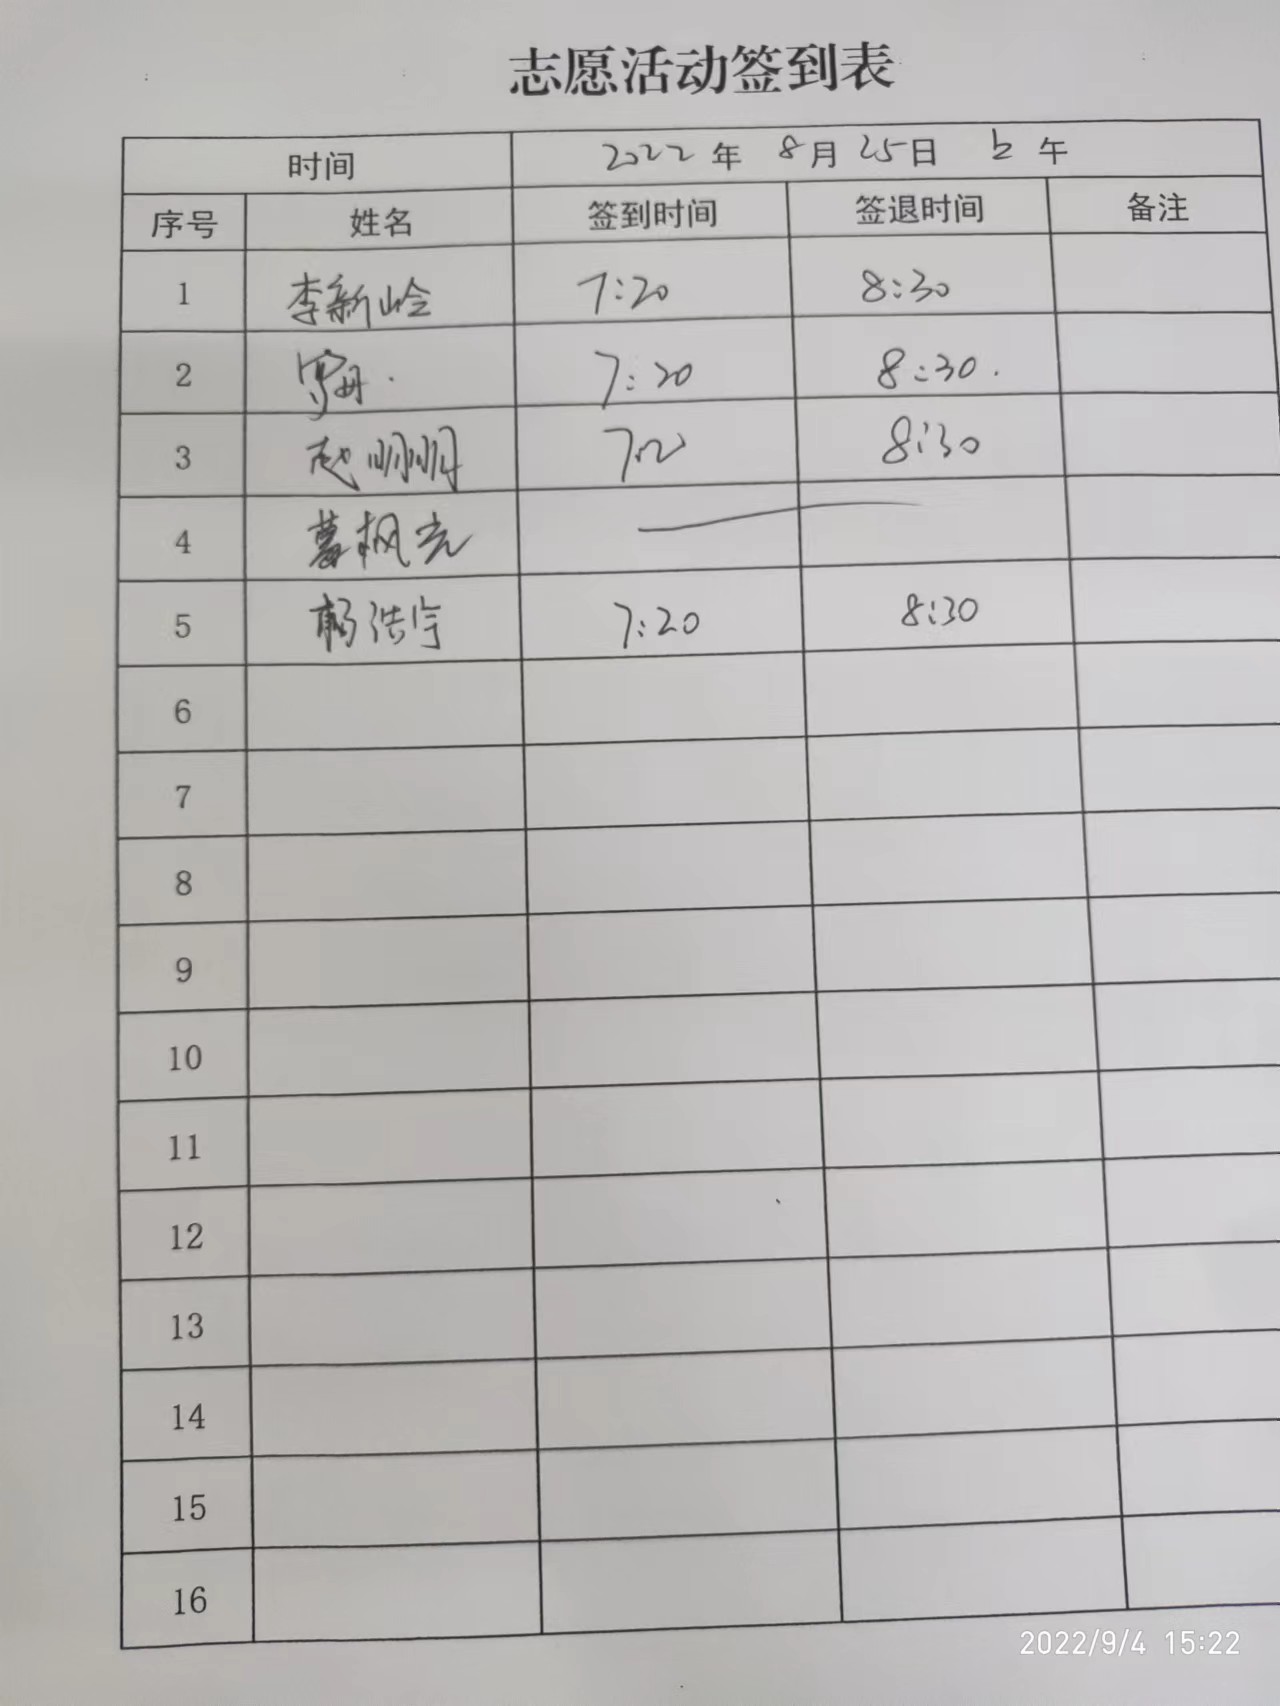 志愿活动签到表
时间 2022年 8月25日 上午
序号 姓名 签到时间 签退时间 备注
1 李新岭 7:20 8:30
2 罗丹 7:20 8:30.
3 赵明明 7:20 8:30
4 —
5 杨浩宇 7:20 8:30
6
7
8
9
10
11
12
13
14
15
16
2022/9/4 15:22